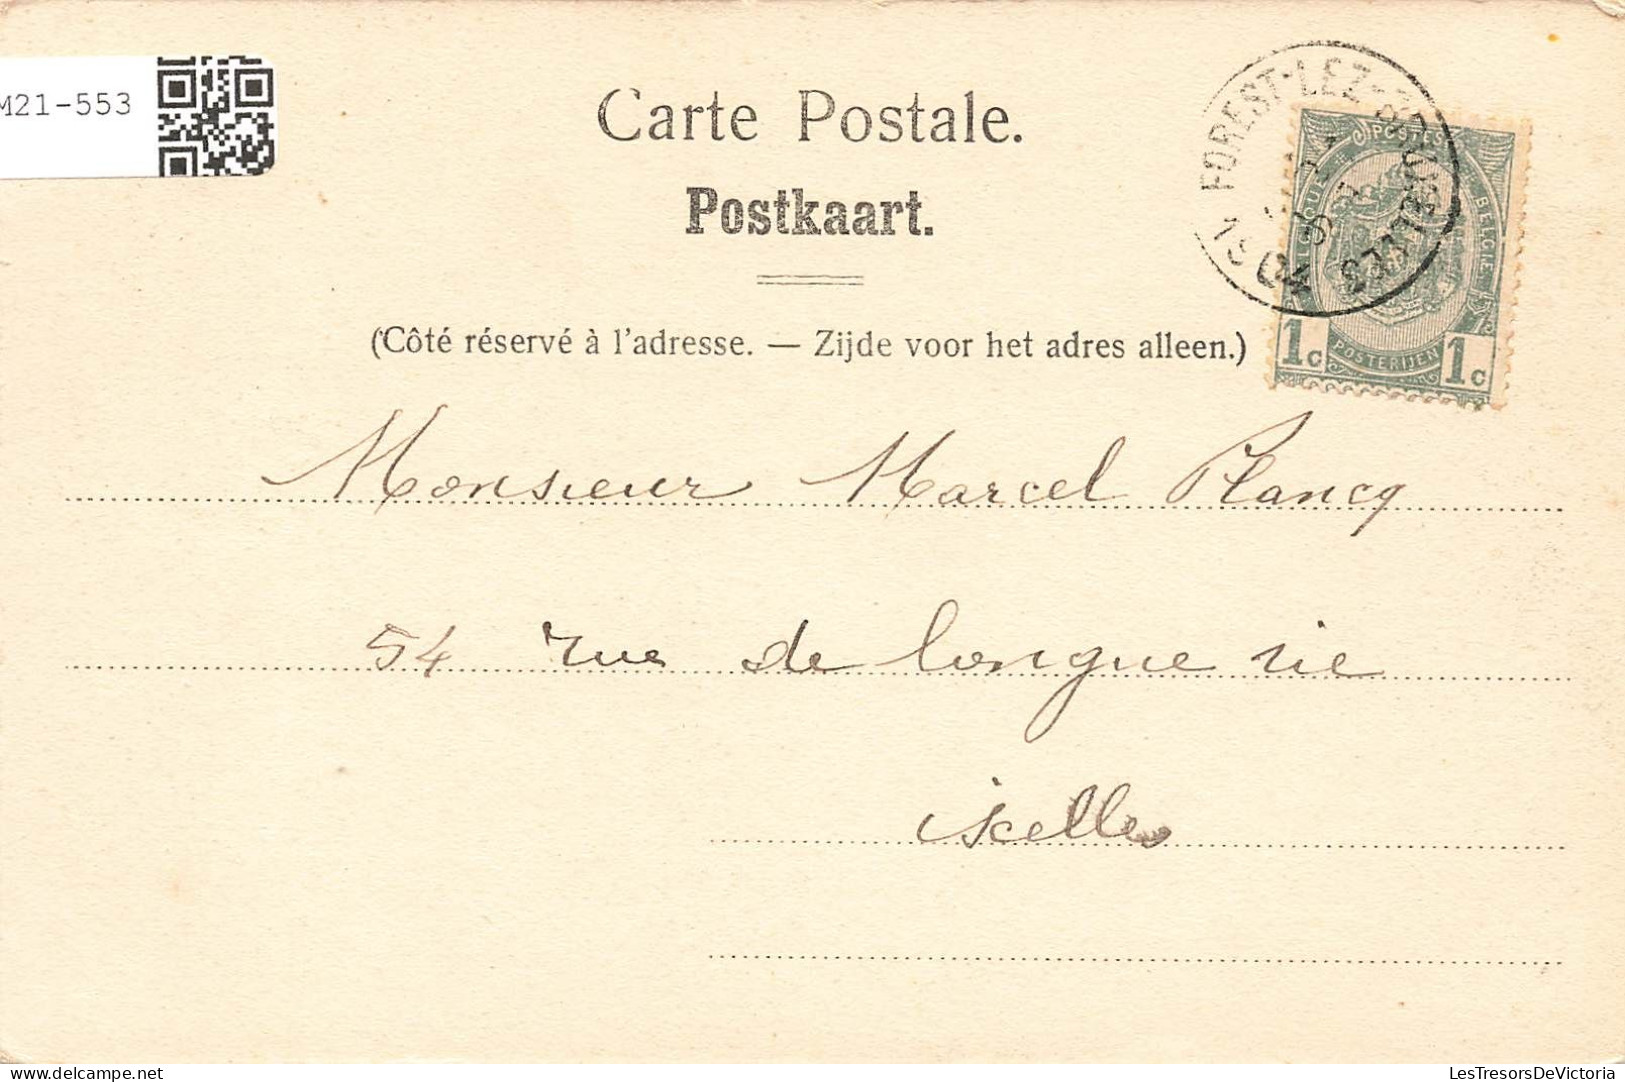 M21-553
Carte Postale.
Postkaart.
(Côté réservé à l'adresse. — Zijde voor het adres alleen.)
FOREST-LEZ-BRUXELLES
1904
POSTES
BELGIQUE
BELGIE
POSTERIJEN
1c 1c
Monsieur Marcel Plancq
54 rue de longue vie
ixelles
LesTresorsDeVictoria